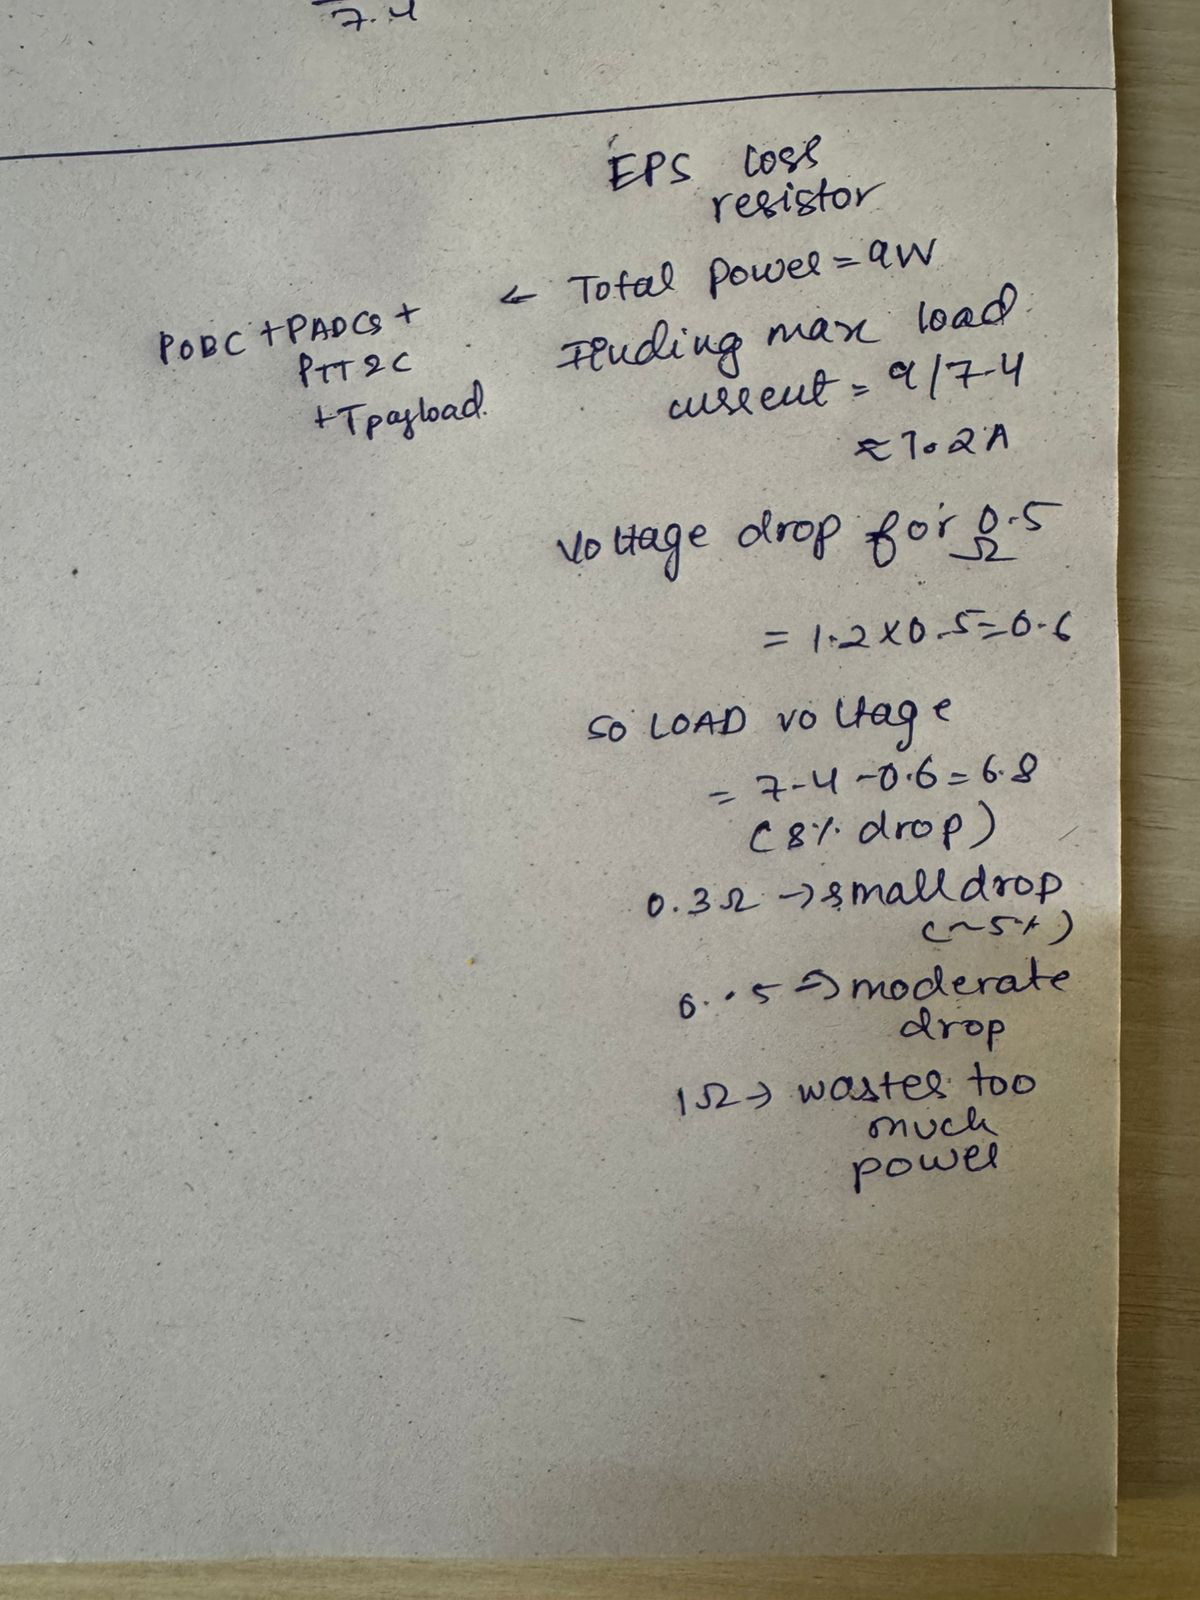 7.4
EPS loss
resistor
← Total power = 9W
POBC + PADCS +
PTT&C
+ Tpayload.
Finding max load
current = 9/7.4
≈ 1.2A
Voltage drop for 0.5
Ω
= 1.2×0.5=0.6
so LOAD voltage
= 7.4 - 0.6 = 6.8
(8% drop)
0.3Ω → small drop
(~5%)
0..5 → moderate
drop
1Ω → wastes too
much
power